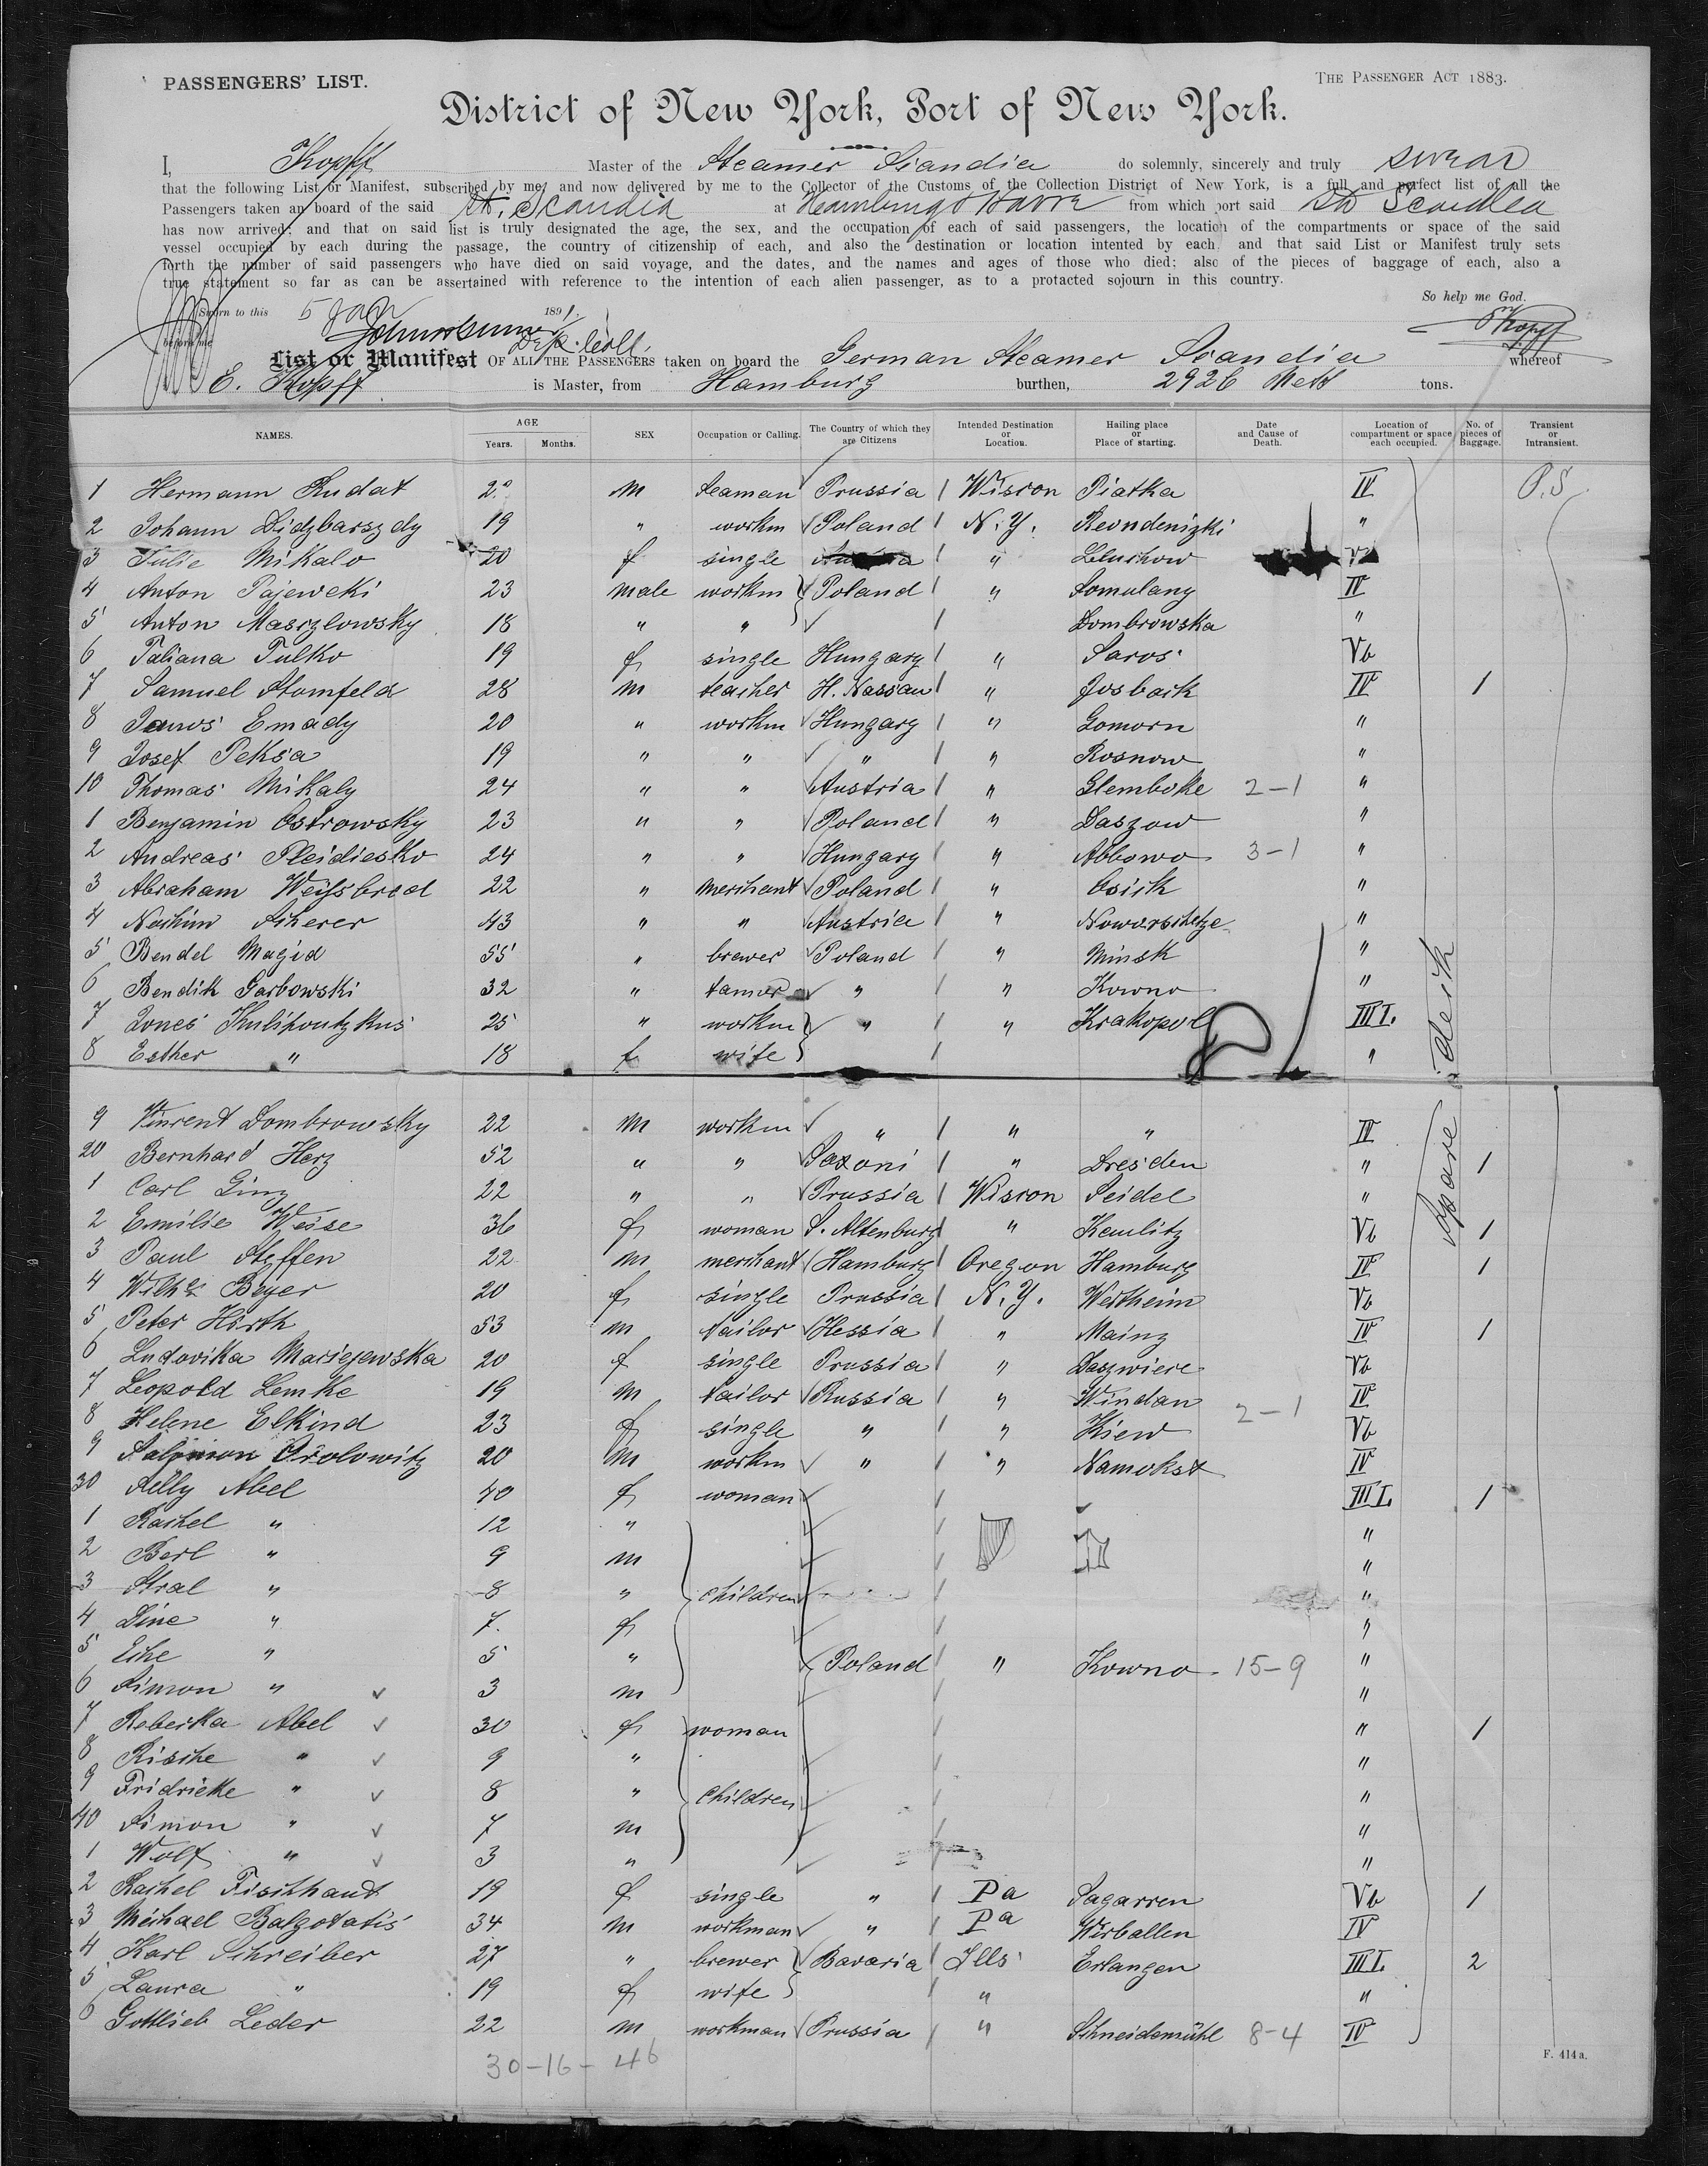 PASSENGERS' LIST.
THE PASSENGER ACT 1883.
District of New York, Port of New York.
I, Kopff Master of the Steamer Scandia do solemnly, sincerely and truly swear
that the following List or Manifest, subscribed by me, and now delivered by me to the Collector of the Customs of the Collection District of New York, is a full and perfect list of all the
Passengers taken an board of the said St. Scandia at Hamburg & Havre from which port said SS Scandia
has now arrived; and that on said list is truly designated the age, the sex, and the occupation of each of said passengers, the location of the compartments or space of the said
vessel occupied by each during the passage, the country of citizenship of each, and also the destination or location intented by each, and that said List or Manifest truly sets
forth the number of said passengers who have died on said voyage, and the dates, and the names and ages of those who died; also of the pieces of baggage of each, also a
true statement so far as can be assertained with reference to the intention of each alien passenger, as to a protacted sojourn in this country.
So help me God.
Sworn to this 5 Jan 1891.
before me
Kopff
List or Manifest OF ALL THE PASSENGERS taken on board the German Steamer Scandia whereof
E. Kopff is Master, from Hamburg burthen, 2926 Nett tons.
NAMES. AGE Years. Months. SEX Occupation or Calling. The Country of which they are Citizens Intended Destination or Location. Hailing place or Place of starting. Date and Cause of Death. Location of compartment or space each occupied. No. of pieces of Baggage. Transient or Intransient.
1 Hermann Kudat 2 m seaman Prussia Wiscon Piatka IV P.S
2 Johann Lidzbarszdy 19 " workm Poland N.Y. "
3 Julie Mikalo 20 f single "
4 Anton Pajewcki 23 male workm Poland " Lomulany IV
5 Anton Masczlowsky 18 " " Dombrowska "
6 Taliana Tulko 19 f single Hungary " Saros Vb
7 Samuel Stomfeld 28 m teacher H. Nassau " Josbach IV 1
8 Janos Emady 20 " workm Hungary " Gomorn "
9 Josef Peksa 19 " " " " Rosnow "
10 Thomas Mikaly 24 " " Austria " Glemboke 2-1 "
1 Benjamin Ostrowsky 23 " " Poland " Daszow "
2 Andreas Pleidiesko 24 " " Hungary " Abbowo 3-1 "
3 Abraham Weissbrod 22 " merchant Poland " Osick "
4 Nochim Scherer 43 " " Austria " "
5 Bendel Magid 55 " brewer Poland " Minsk "
6 Bendik Garbowski 32 " tanner " " Kowno "
7 Jones 25 " workm " " Krakopol III I.
8 Esther " 18 f wife "
deck
9 Vincent Dombrowsky 22 m workm " " " IV
20 Bernhard Herz 52 " " Saxoni " Dresden " 1
1 Carl Ginz 22 " " Prussia Wiscon Seidel "
2 Emilie Weise 36 f woman S. Altenburg " Kemlitz Vb 1
3 Paul Steffen 22 m merchant Hamburg Oregon Hamburg IV 1
4 Wilhe Beyer 20 f single Prussia N.Y. Wertheim Vb
5 Peter Hirth 53 m tailor Hessia " Mainz IV 1
6 Ludovika Maciejewska 20 f single Prussia " Daszwiece Vb
7 Leopold Lemke 19 m tailor Russia " Windau IV
8 Helene Elkind 23 f single " " Kiew 2-1 Vb
9 Salomon Orolowitz 20 m workm " " Namokst IV
30 Silly Abel 40 f woman III I. 1
1 Rachel " 12 " "
2 Berl " 9 m "
3 Sral " 8 " children "
4 Line " 7 f "
5 Eihe " 5 " Poland " Kowno 15-9 "
6 Simon " 3 m "
7 Rebecka Abel 30 f woman " 1
8 Rische " 9 " "
9 Fridricke " 8 " children "
40 Simon " 7 m "
1 Wolf " 3 " "
2 Rachel Fischhaut 19 f single " Pa Sagarren Vb 1
3 Michael Balzotatis 34 m workman " Pa Wirballen IV
4 Karl Schreiber 27 " brewer Bavaria Ills Erlangen III I. 2
5 Laura " 19 f wife " "
6 Gottlieb Leder 22 m workman Prussia " Schneidemühl 8-4 IV
Space
30-16-46
F. 414 a.